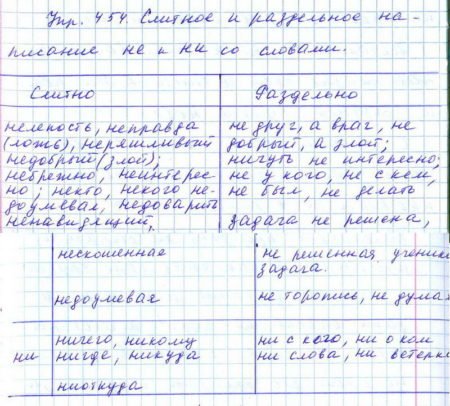 Упр. 454. Слитное и раздельное на-
писание не и ни со словами.
Слитно Раздельно
нелепость, неправда не друг, а враг, не
(ложь), неряшливый добрый, а злой;
недобрый (злой); ничуть не интересно;
небрежно, неинтерес- не у кого, не с кем,
но; некто, некого не- не был, не делать,
доумевал, недоварить
ненавидящий, задача не решена,
нескошенная не решенная ученик
задача.
недоумевая не торопись, не дума
ничего, никому ни с кого, ни о ком
ни нигде, никуда ни слова, ни ветерк
ниоткуда